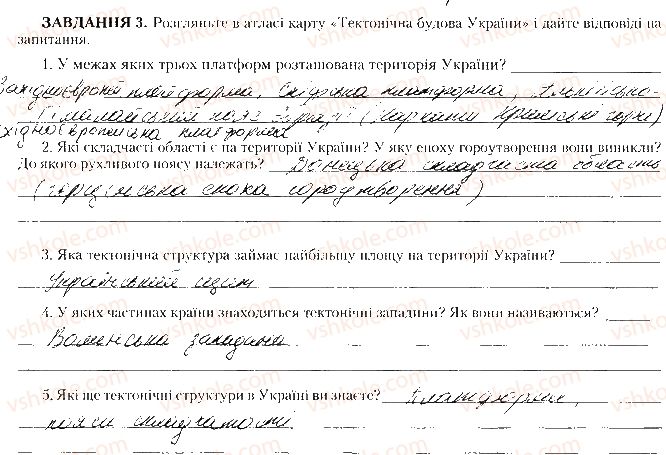 ЗАВДАННЯ 3. Розгляньте в атласі карту «Тектонічна будова України» і дайте відповіді на
запитання.
1. У межах яких трьох платформ розташована територія України?
Західноєвроп платформа, Східська платформа, Альпійсько-
Гімалайський пояс (Карпати Кримські гори)
східноєвропейська платформа
2. Які складчасті області є на території України? У яку епоху гороутворення вони виникли?
До якого рухливого поясу належать? Донецька складчаста область
(герцинська епоха гороутворення)
3. Яка тектонічна структура займає найбільшу площу на території України?
Український щит
4. У яких частинах країни знаходяться тектонічні западини? Як вони називаються?
Волинська западина.
5. Які ще тектонічні структури в Україні ви знаєте? Платформи,
пояси складчатості.